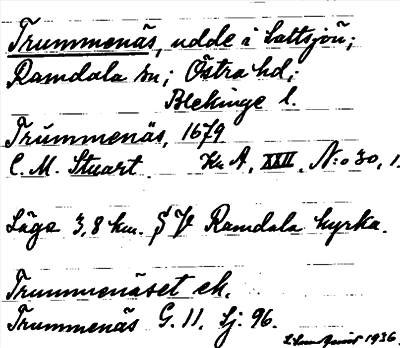 Trummenäs, udde i Saltsjön;
Ramdala sn; Östra hd;
Blekinge l.
Trummenäs, 1679
C. M. Stuart. Kr. A, XXII, N:o 30, 1.
Läge 3,8 km. S Ramdala kyrka.
Trummenäset ek.
Trummenäs G. 11. Sj: 96.
1936.